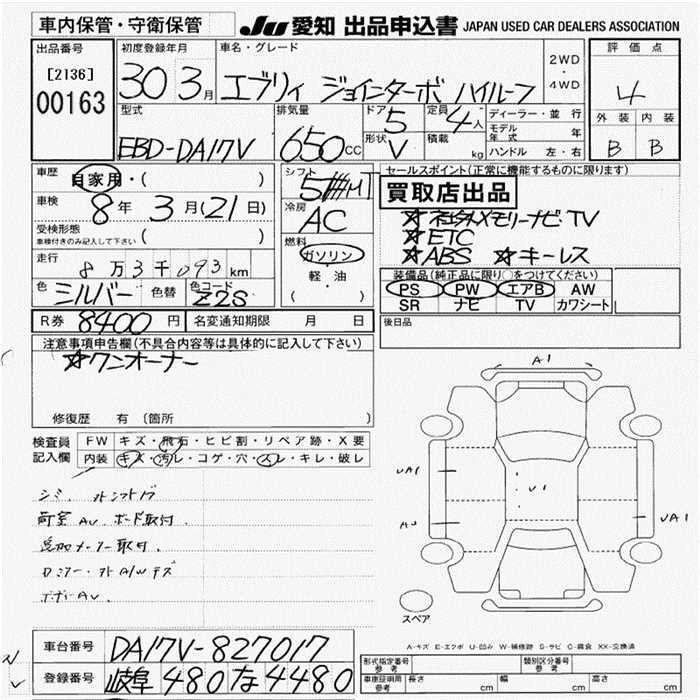 車内保管・守衛保管
JU 愛知 出品申込書 JAPAN USED CAR DEALERS ASSOCIATION
出品番号
[2136]
00163
初度登録年月
30 3月
車名・グレード
エブリィ ジョインターボ ハイルーフ
2WD
・
4WD
評価点
4
外装 内装
B B
型式
EBD-DA17V
排気量
650 CC
ドア
5
形状
V
定員
4人
積載
kg
ディーラー・並行
モデル年式 年
ハンドル 左・右
車歴
自家用・( )
車検
8年 3月(21日)
受検形態
車検付きのみ記入して下さい ( )
走行
8万3千093km
色
シルバー
色替
色コード
Z2S
シフト
冷房
AC
燃料
ガソリン
・
軽・油
( )
セールスポイント(正常に機能するものに限ります)
買取店出品
☆社外メモリーナビ・TV
☆ETC
☆ABS ☆キーレス
装備品(純正品に限り○をつけてください)
PS PW エアB AW
SR ナビ TV カワシート
R券 8400円
名変通知期限 月 日
後日品
注意事項申告欄(不具合内容等は具体的に記入して下さい)
☆ワンオーナー
修復歴 有(箇所 )
検査員記入欄
FW キズ・飛石・ヒビ割・リペア跡・X要
内装 キズ・汚レ・コゲ・穴・スレ・キレ・破レ
荷室AU ボード取付.
A1
UA1
U1
UA1
スペア
A-キズ E-エクボ U-凹み W-補修跡 S-サビ C-腐食 XX-交換済
車台番号 DA17V-827017
登録番号 岐阜 480 な 4480
形式指定番号
参考
類別区分番号
参考
車庫証明用
参考
長さ cm 幅 cm 高さ cm